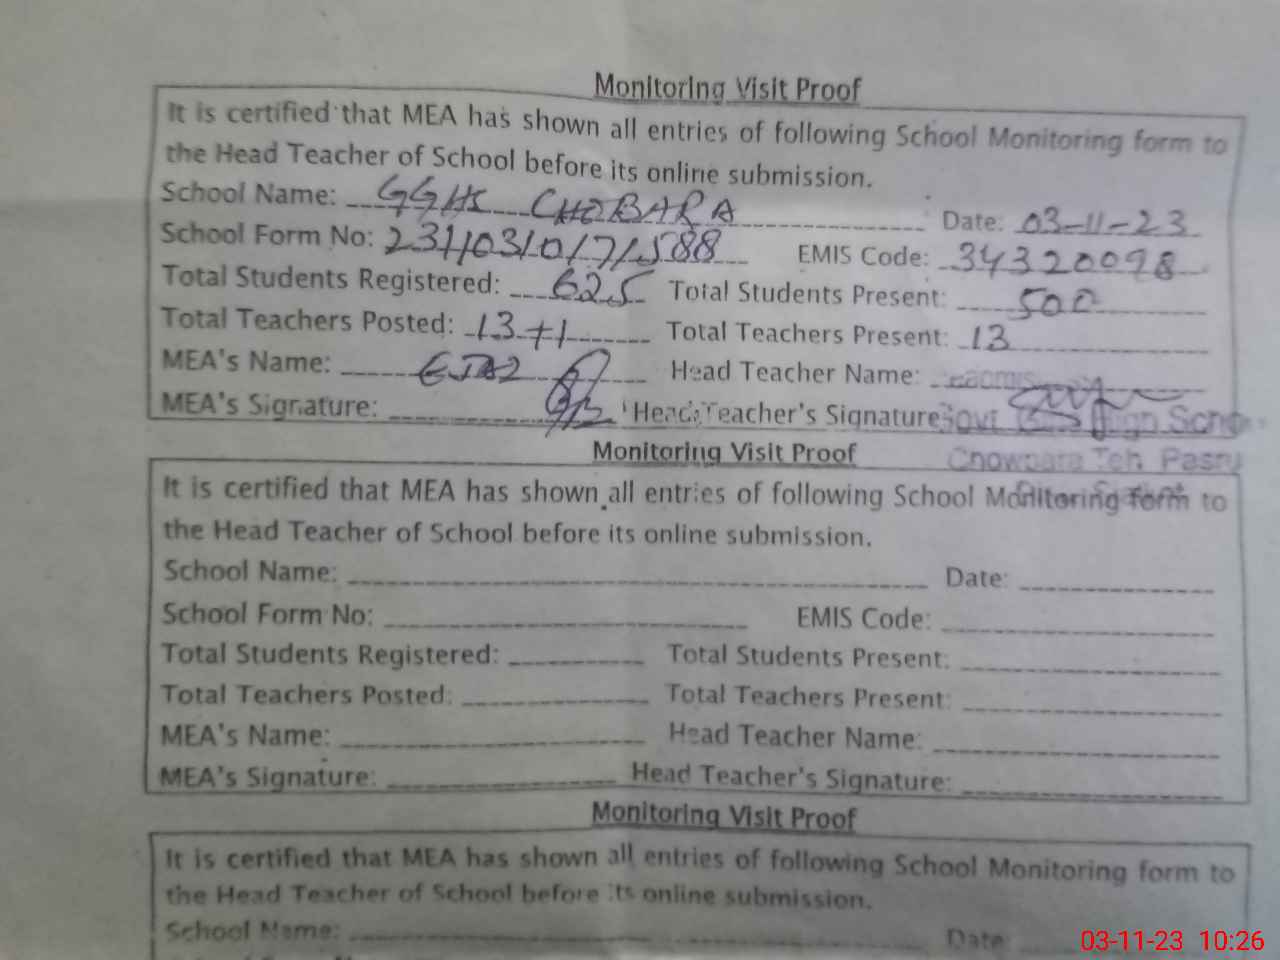 Monitoring Visit Proof
It is certified that MEA has shown all entries of following School Monitoring form to
the Head Teacher of School before its online submission.
School Name: GGHS CHOBARA Date: 03-11-23
School Form No: EMIS Code: 34320098
Total Students Registered: 625 Total Students Present: 500
Total Teachers Posted: 13+1 Total Teachers Present: 13
MEA's Name: EJAZ Head Teacher Name:
MEA's Signature: Head Teacher's Signature:
Govt High
Chowpara Teh
Monitoring Visit Proof
It is certified that MEA has shown all entries of following School Monitoring form to
the Head Teacher of School before its online submission.
School Name: Date:
School Form No: EMIS Code:
Total Students Registered: Total Students Present:
Total Teachers Posted: Total Teachers Present:
MEA's Name: Head Teacher Name:
MEA's Signature: Head Teacher's Signature:
Monitoring Visit Proof
It is certified that MEA has shown all entries of following School Monitoring form to
the Head Teacher of School before its online submission.
School Name: Date
03-11-23 10:26